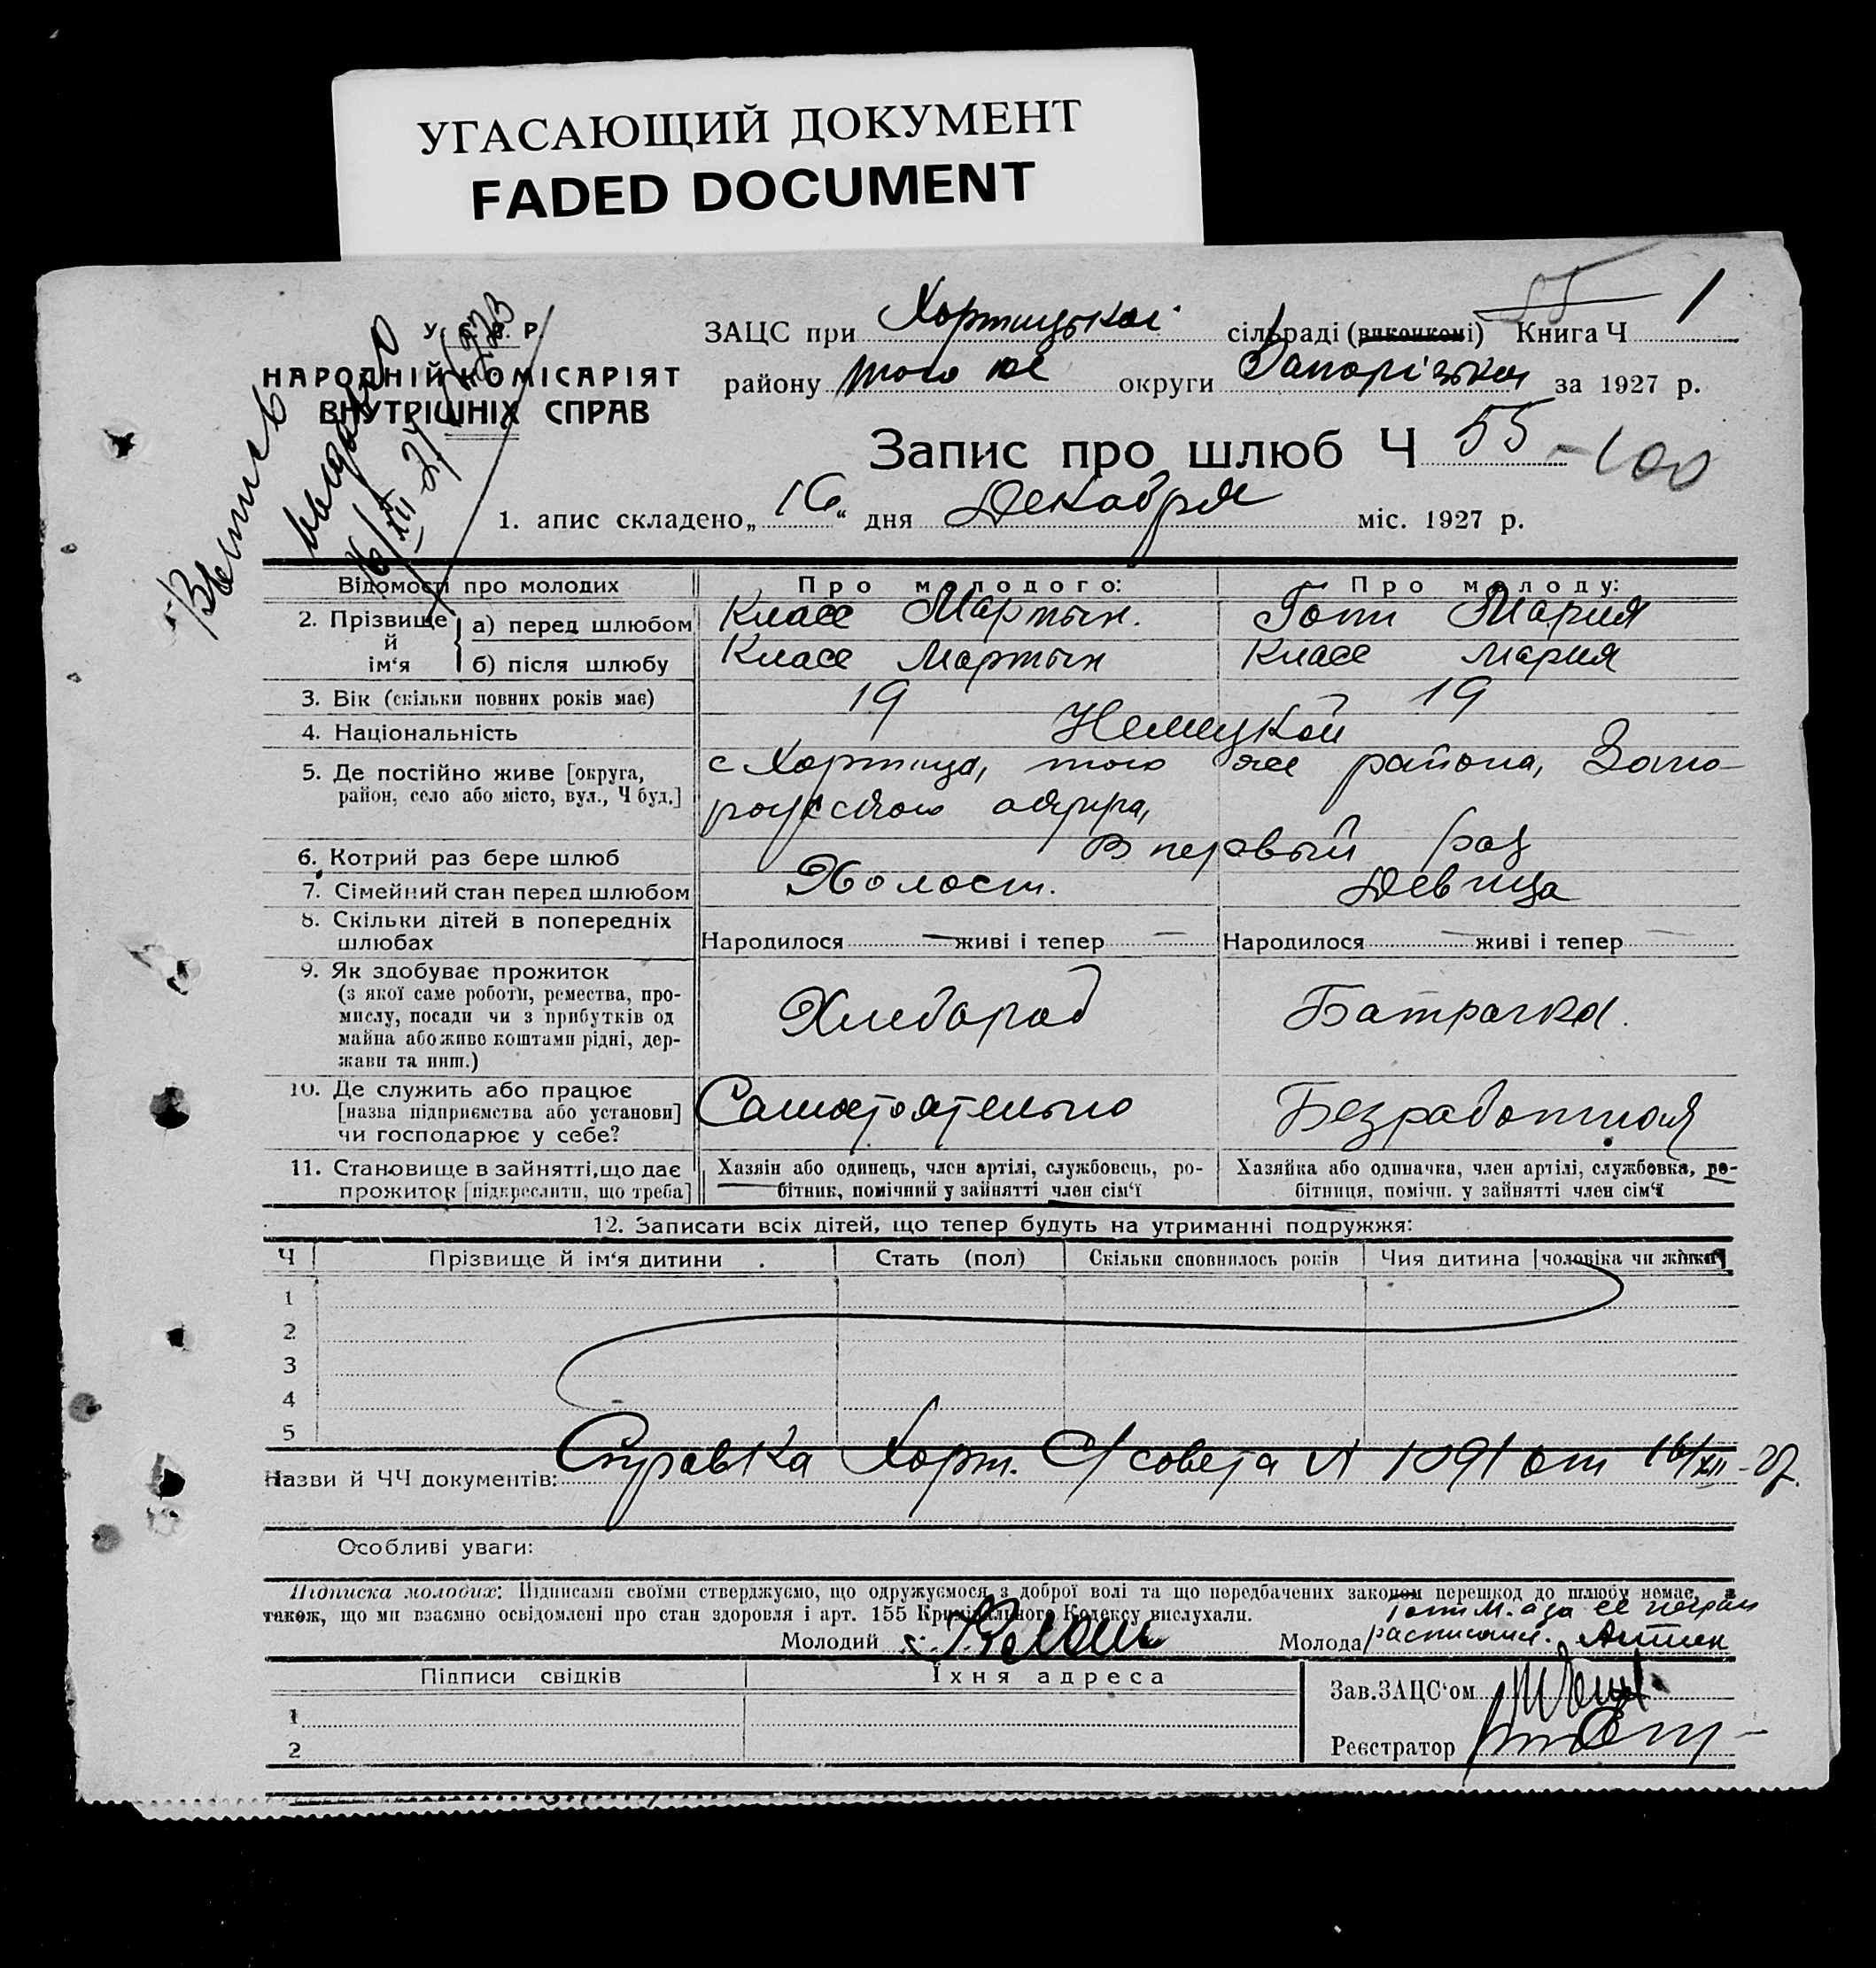 УГАСАЮЩИЙ ДОКУМЕНТ
FADED DOCUMENT
55 1
У. С. Р. Р.
НАРОДНІЙ КОМІСАРІЯТ
ВНУТРІШНІХ СПРАВ
Выпись
выдано
16/XII 27
ЗАЦС при Хортицькоі сільраді (виконкомі) Книга Ч
району того же округи Запорізькоі за 1927 р.
Запис про шлюб Ч 55 - 100
1. апис складено „16“ дня Декабря міс. 1927 р.
Відомості про молодих Про молодого: Про молоду:
2. Прізвище й ім‘я
а) перед шлюбом Класс Мартын. Готи Мария
б) після шлюбу Класс Мартын Класс Мария
3. Вік (скільки повних років має) 19 19
4. Національність Немецкой
5. Де постійно живе [округа, с Хортица, того же района, Запо-
район, село або місто, вул., Ч буд.] рожского округа,
6. Котрий раз бере шлюб В первый раз
7. Сімейний стан перед шлюбом Холост. Девица
8. Скільки дітей в попередніх
шлюбах Народилося — живі і тепер — Народилося — живі і тепер —
9. Як здобуває прожиток
(з якої саме роботи, ремества, про-
мислу, посади чи з прибутків од Хлебороб Батрачка.
майна або живе коштами рідні, дер-
жави та инш.)
10. Де служить або працює
[назва підприємства або установи] Самостоятельно Безработная
чи господарює у себе?
11. Становище в зайнятті, що дає Хазяін або одинець, член артілі, службовець, ро- Хазяйка або одиначка, член артілі, службовка, ро-
прожиток [підкреслити, що треба] бітник, помічний у зайнятті член сім‘ї бітниця, помічн. у зайнятті член сім‘ї
12. Записати всіх дітей, що тепер будуть на утриманні подружжя:
Ч Прізвище й ім‘я дитини Стать (пол) Скільки сповнилось років Чия дитина [чоловіка чи жінки]
1
2
3
4
5
Назви й ЧЧ документів: Справка Хорт. С/совета № 1091 от 16/XII-27.
Особливі уваги:
Підписка молодих: Підписами своїми стверджуємо, що одружуємося з доброї волі та що передбачених законом перешкод до шлюбу немає, а
також, що ми взаємно освідомлені про стан здоровля і арт. 155 Кримінального Кодексу вислухали.
Готи М. а за ее неграм
Молодий Молода расписался.
Підписи свідків Їхня адреса
Зав. ЗАЦС‘ом
1
Реєстратор
2